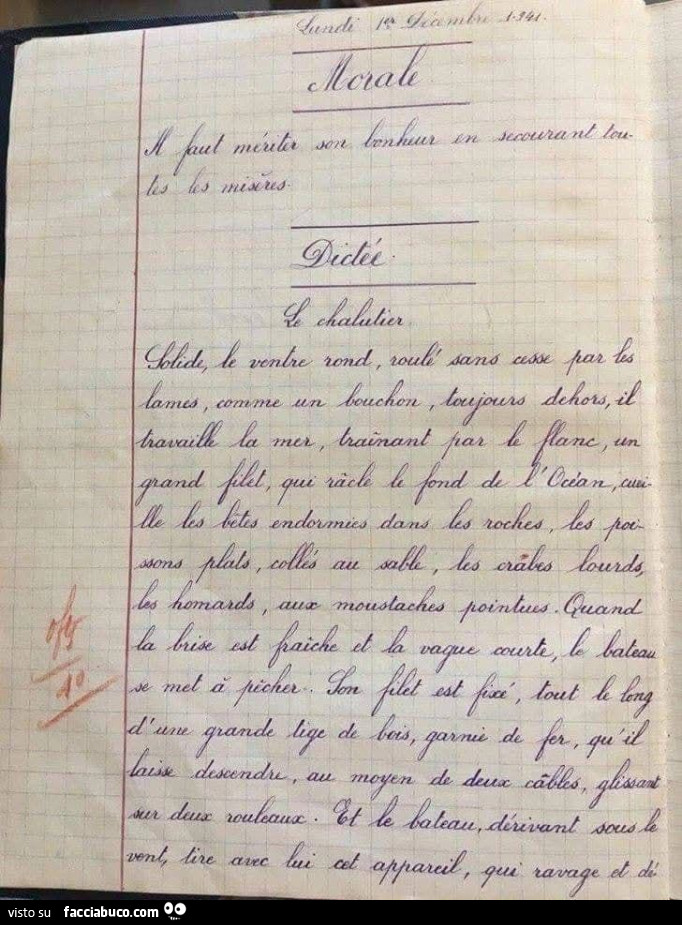 Lundi 1er Décembre 1941.
Morale
Il faut mériter son bonheur en secourant tou-
tes les misères.
Dictée.
Le chalutier.
Solide, le ventre rond, roulé sans cesse par les
lames, comme un bouchon, toujours dehors, il
travaille la mer, traînant par le flanc, un
grand filet, qui râcle le fond de l'Océan, cuei-
lle les bêtes endormies dans les roches, les poi-
ssons plats, collés au sable, les crâbes lourds,
les homards, aux moustaches pointues. Quand
la brise est fraîche et la vague courte, le bateau
se met à pêcher. Son filet est fixé, tout le long
d'une grande tige de bois, garnie de fer, qu'il
laisse descendre, au moyen de deux câbles, glissant
sur deux rouleaux. Et le bateau, dérivant sous le
vent, tire avec lui cet appareil, qui ravage et dé
10
visto su facciabuco.com